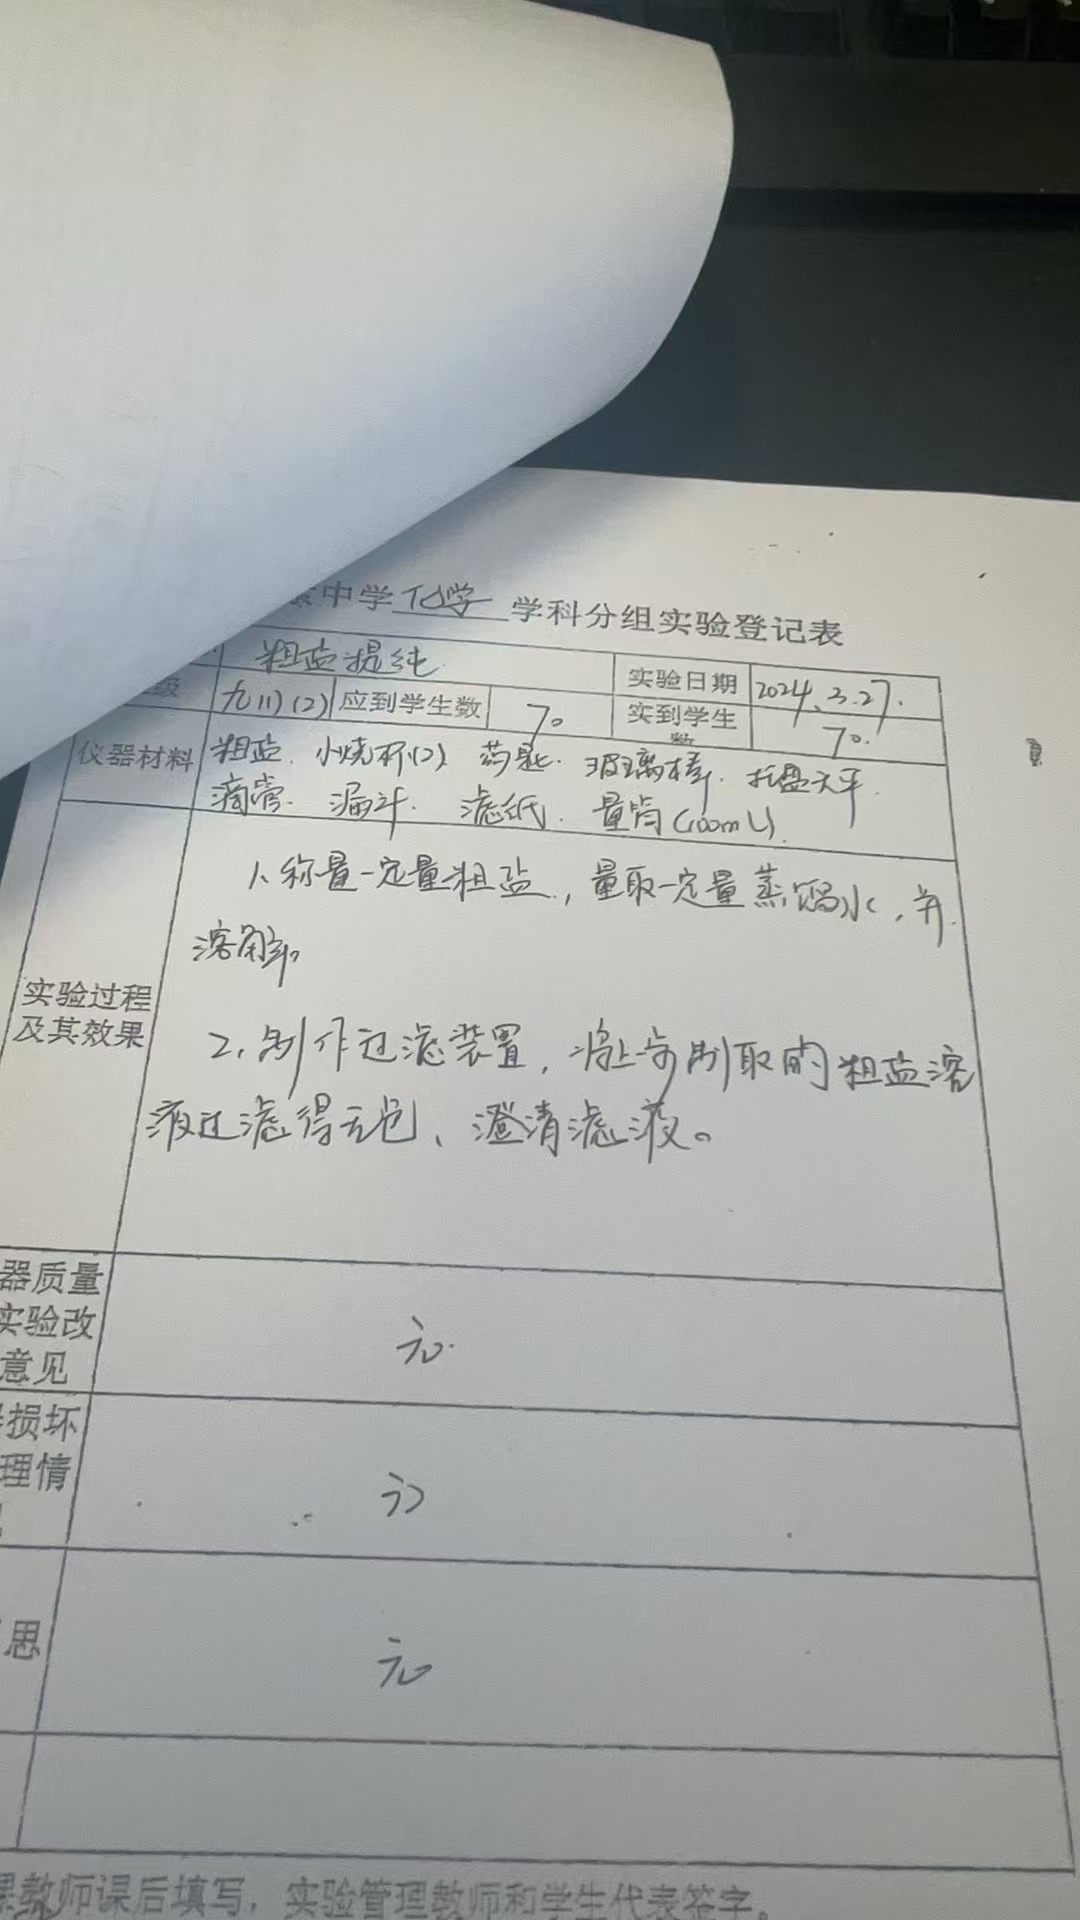 中学 化学 学科分组实验登记表
粗盐提纯 实验日期 2024.3.27.
级 九(1)(2) 应到学生数 70 实到学生数 70.
仪器材料 粗盐. 小烧杯(2) 药匙. 玻璃棒. 托盘天平.
滴管. 漏斗. 滤纸. 量筒(100mL).
1、称量一定量粗盐,量取一定量蒸馏水,并
溶解。
实验过程
及其效果
2、制作过滤装置,将上步制取的粗盐溶
液过滤得无色、澄清滤液。
器质量
实验改
意见
无.
损坏
理情
无
思
无
课教师课后填写,实验管理教师和学生代表签字。